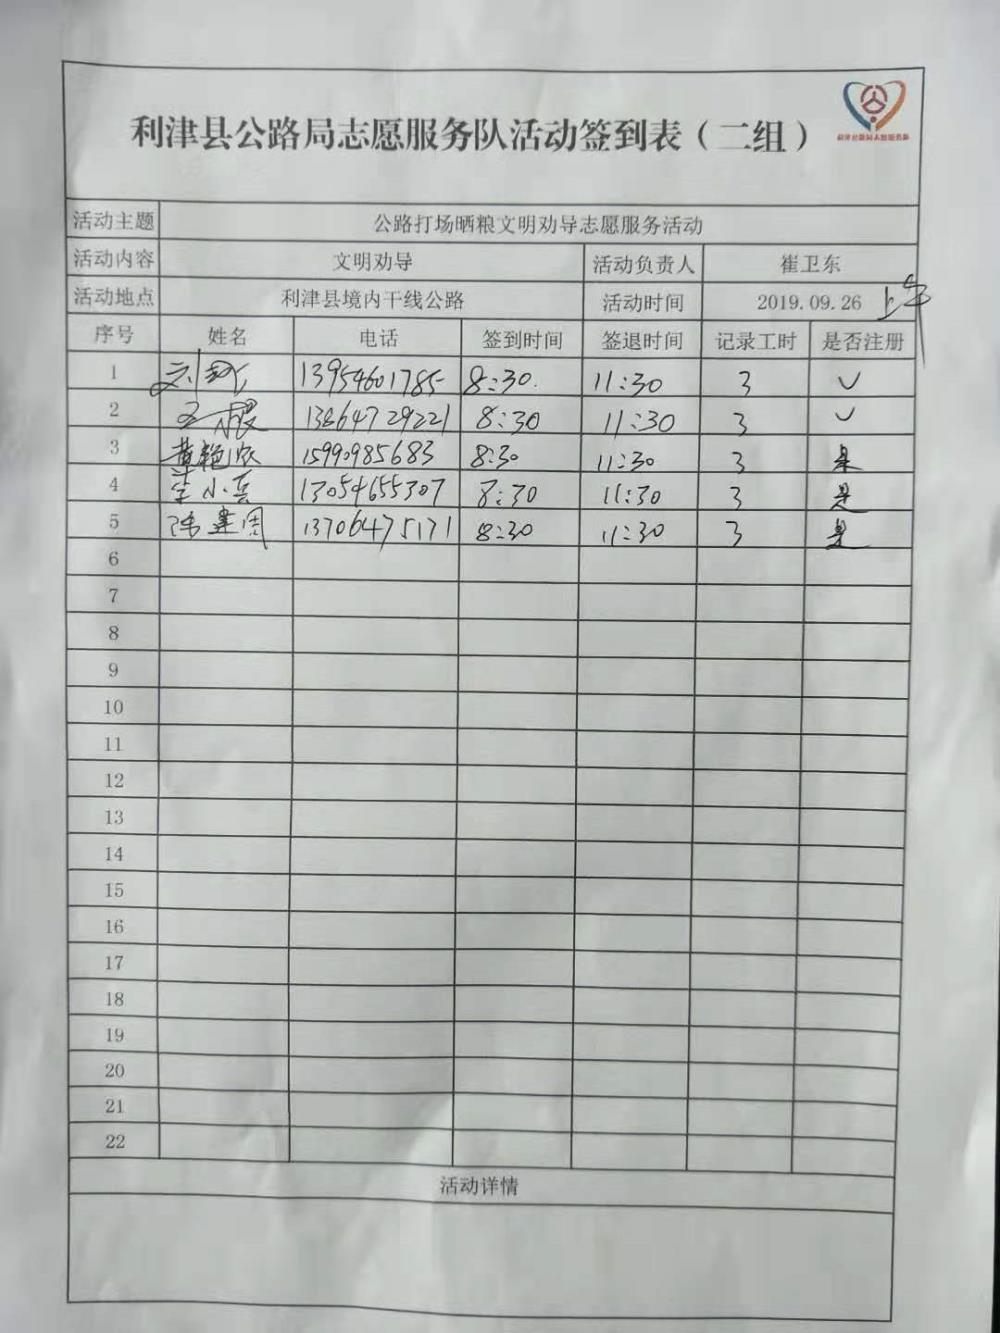 利津县公路局志愿服务队活动签到表（二组）
利津县公路局志愿服务队
活动主题 公路打场晒粮文明劝导志愿服务活动
活动内容 文明劝导 活动负责人 崔卫东
活动地点 利津县境内干线公路 活动时间 2019.09.26 上午
序号 姓名 电话 签到时间 签退时间 记录工时 是否注册
1 13954601785 8:30. 11:30 3 ✓
2 13864729221 8:30 11:30 3 ✓
3 15990985683 8:30 11:30 3 是
4 李小兵 13054655307 8:30 11:30 3 是
5 陈建周 13706475171 8:30 11:30 3 是
6
7
8
9
10
11
12
13
14
15
16
17
18
19
20
21
22
活动详情